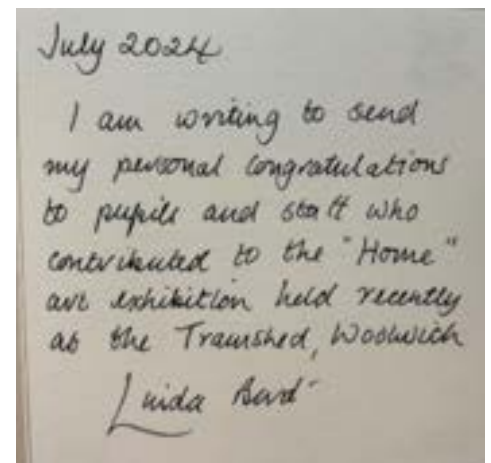 July 2024
I am writing to send
my personal congratulations
to pupils and staff who
contributed to the "Home"
art exhibition held recently
at the Tramshed, Woolwich